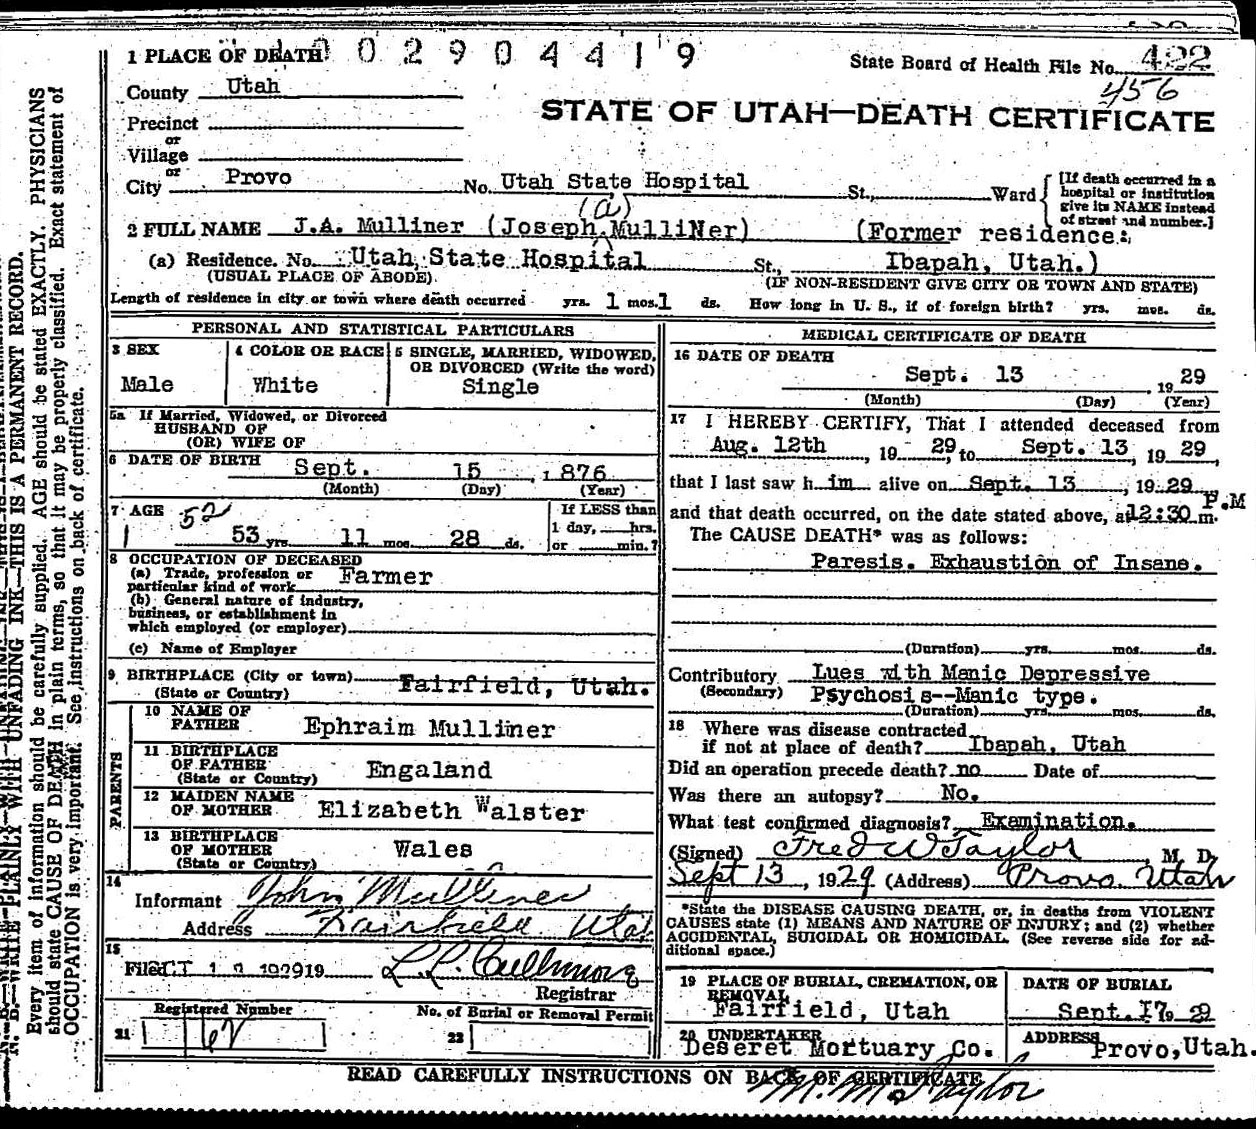 1 PLACE OF DEATH 0 0 2 9 0 4 4 1 9
State Board of Health File No. 422
456
County Utah
STATE OF UTAH—DEATH CERTIFICATE
Precinct
or
Village
or
City Provo No. Utah State Hospital St., Ward
[If death occurred in a hospital or institution give its NAME instead of street and number.]
(a)
2 FULL NAME J.A. Mulliner (Joseph MulliNer) (Former residence:
(a) Residence. No. Utah State Hospital St., Ibapah, Utah.)
(USUAL PLACE OF ABODE) (IF NON-RESIDENT GIVE CITY OR TOWN AND STATE)
Length of residence in city or town where death occurred yrs. 1 mos. 1 ds. How long in U. S., if of foreign birth? yrs. mos. ds.
PERSONAL AND STATISTICAL PARTICULARS
3 SEX
Male
4 COLOR OR RACE
White
5 SINGLE, MARRIED, WIDOWED, OR DIVORCED (Write the word)
Single
5a If Married, Widowed, or Divorced
HUSBAND OF
(OR) WIFE OF
6 DATE OF BIRTH Sept. 15 , 1876
(Month) (Day) (Year)
7 AGE 52
53 yrs. 11 mos. 28 ds.
If LESS than
1 day, hrs.
or min.?
8 OCCUPATION OF DECEASED
(a) Trade, profession or
particular kind of work Farmer
(b) General nature of industry,
business, or establishment in
which employed (or employer)
(c) Name of Employer
9 BIRTHPLACE (City or town)
(State or Country) Fairfield, Utah.
PARENTS
10 NAME OF
FATHER Ephraim Mulliner
11 BIRTHPLACE
OF FATHER Engaland
(State or Country)
12 MAIDEN NAME
OF MOTHER Elizabeth Walster
13 BIRTHPLACE
OF MOTHER Wales
(State or Country)
14
Informant John Mulliner
Address Fairfield Utah
15
Filed OCT 1 1929 19 
Registrar
Registered Number
21 62
No. of Burial or Removal Permit
22
MEDICAL CERTIFICATE OF DEATH
16 DATE OF DEATH
Sept. 13 19 29
(Month) (Day) (Year)
17 I HEREBY CERTIFY, That I attended deceased from
Aug. 12th , 19 29, to Sept. 13, 19 29,
that I last saw h im alive on Sept. 13 , 19 29
and that death occurred, on the date stated above, at 12:30 P.M m.
The CAUSE DEATH* was as follows:
Paresis. Exhaustion of Insane.
(Duration) yrs. mos. ds.
Contributory Lues with Manic Depressive
(Secondary) Psychosis--Manic type.
(Duration) yrs. mos. ds.
18 Where was disease contracted
if not at place of death? Ibapah, Utah
Did an operation precede death? no Date of
Was there an autopsy? No.
What test confirmed diagnosis? Examination.
(Signed) Fred W Taylor , M. D.
Sept 13 , 1929 (Address) Provo Utah
*State the DISEASE CAUSING DEATH, or, in deaths from VIOLENT
CAUSES state (1) MEANS AND NATURE OF INJURY; and (2) whether
ACCIDENTAL, SUICIDAL OR HOMICIDAL. (See reverse side for ad-
ditional space.)
19 PLACE OF BURIAL, CREMATION, OR
REMOVAL
Fairfield, Utah
DATE OF BURIAL
Sept. 17
20 UNDERTAKER
Deseret Mortuary Co.
ADDRESS
Provo, Utah.
READ CAREFULLY INSTRUCTIONS ON BACK OF CERTIFICATE
N. B.—WRITE PLAINLY WITH UNFADING INK—THIS IS A PERMANENT RECORD.
Every item of information should be carefully supplied. AGE should be stated EXACTLY. PHYSICIANS
should state CAUSE OF DEATH in plain terms, so that it may be properly classified. Exact statement of
OCCUPATION is very important. See instructions on back of certificate.